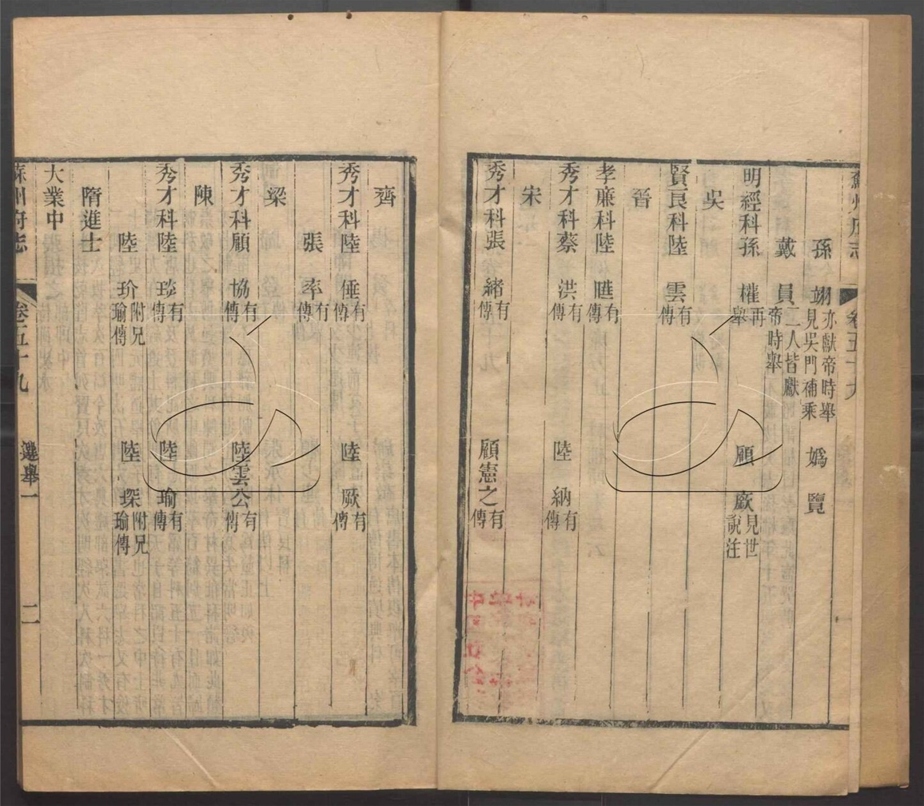 蘇州府志 卷五十九
孫 翊 亦獻帝時舉見吳門補乘 嬀 覽
戴 員 二人皆獻帝時舉
明經科孫 權 再舉 顧 厥 見世說注
吳
賢良科陸 雲 有傳
晉
孝廉科陸 曄 有傳
秀才科蔡 洪 有傳 陸 納 有傳
宋
秀才科張 緒 有傳 顧憲之 有傳
齊
秀才科陸 倕 有傳 陸 厥 有傳
張 率 有傳
梁
秀才科顧 協 有傳 陸雲公 有傳
陳
秀才科陸 琰 有傳 陸 瑜 有傳
陸 玠 附兄瑜傳 陸 琛 附兄瑜傳
隋進士
大業中
蘇州府志 卷五十九 選舉一 二